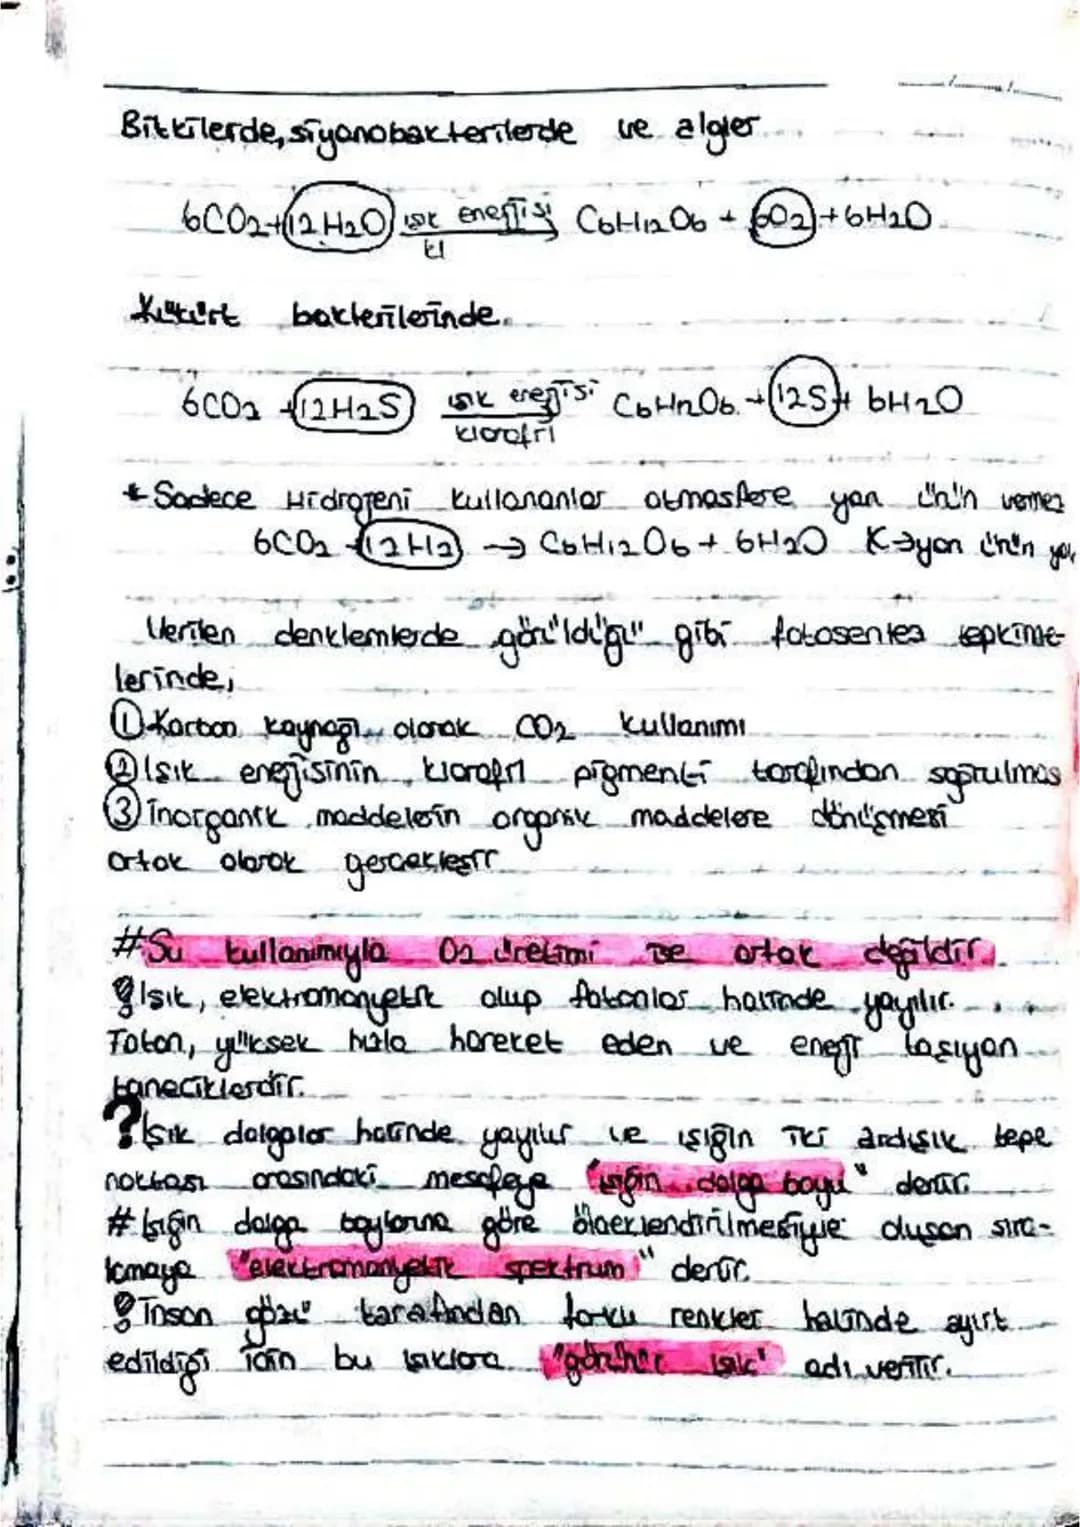 Bitkilerde, siyanobakterilerde ve algler
6CO2+12H2O ışık enerjisi C6H12O6 + 6O2+6H2O
kl
Kükürt bakterilerinde
6CO2 +12H2S ışık enerjisi C6H12O6 + 12S + 6H2O
klorofil
* Sadece Hidrojeni kullananlar atmosfere yan ürün vermez
6CO2 +12H2 → C6H12O6 + 6H2O K→yan ürün yok
Verilen denklemlerde görüldüğü gibi fotosentez tepkime-
lerinde;
① Karbon kaynağı olarak CO2 kullanımı
② Işık enerjisinin klorofil pigmenti tarafından soğrulması
③ İnorganik maddelerin organik maddelere dönüşmesi
ortak olarak gerçekleşir
#Su kullanımıyla O2 üretimi ise ortak değildir.
Işık, elektromanyetik olup fotonlar halinde yayılır.
Foton, yüksek hızla hareket eden ve enerji taşıyan
taneciklerdir.
? Işık dalgalar halinde yayılır ve ışığın iki ardışık tepe
noktası arasındaki mesafeye "ışığın dalga boyu" denir.
# Işığın dalga boylarına göre ölçeklendirilmesiyle oluşan sıra-
lamaya "elektromanyetik spektrum" denir.
İnsan gözü tarafından farklı renkler halinde ayırt
edildiği için bu ışıklara "görünür ışık" adı verilir.